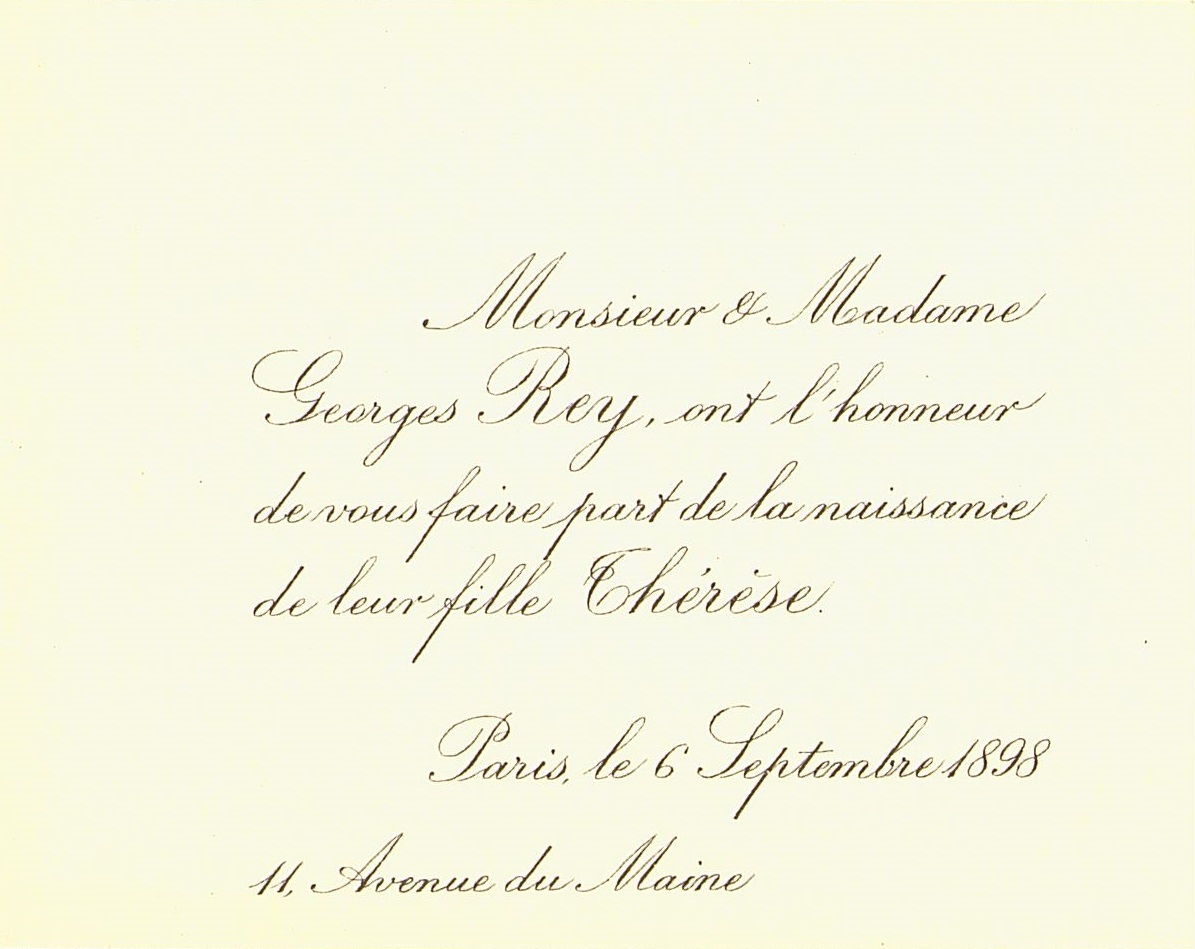 Monsieur & Madame
Georges Rey, ont l'honneur
de vous faire part de la naissance
de leur fille Thérèse.
Paris, le 6 Septembre 1898
11, Avenue du Maine